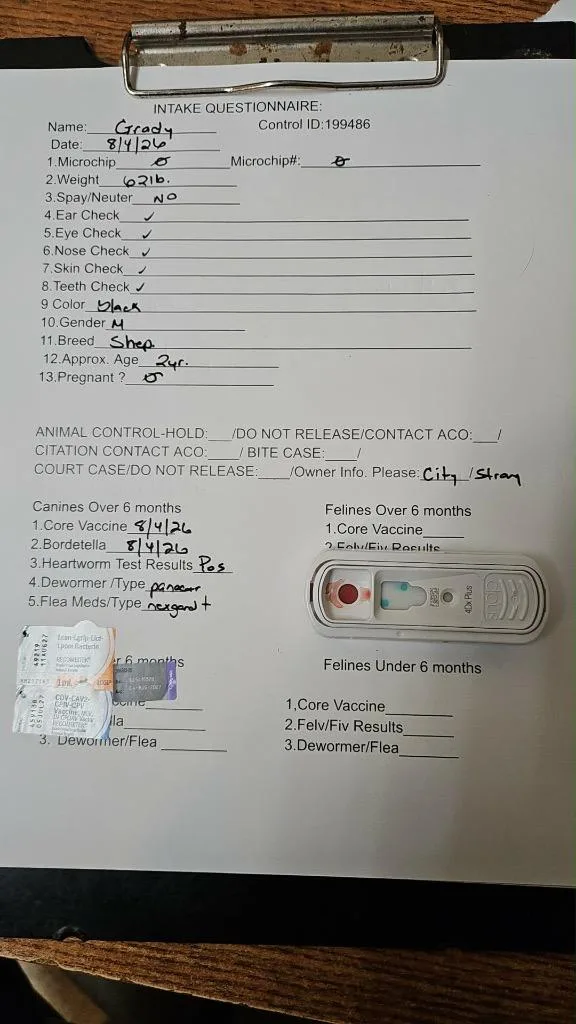 INTAKE QUESTIONNAIRE:
Name: Grady Control ID:199486
Date: 8/4/26
1.Microchip Ø Microchip#: Ø
2.Weight 62lb.
3.Spay/Neuter NO
4.Ear Check ✓
5.Eye Check ✓
6.Nose Check ✓
7.Skin Check ✓
8.Teeth Check ✓
9 Color black
10.Gender M
11.Breed Shep.
12.Approx. Age 2yr.
13.Pregnant ? Ø
ANIMAL CONTROL-HOLD:___/DO NOT RELEASE/CONTACT ACO:___/
CITATION CONTACT ACO:____/ BITE CASE:____/
COURT CASE/DO NOT RELEASE:____/Owner Info. Please: City/Stray
Canines Over 6 months
1.Core Vaccine 8/4/26
2.Bordetella 8/4/26
3.Heartworm Test Results Pos
4.Dewormer /Type panacur
5.Flea Meds/Type nexgard +
Felines Over 6 months
1.Core Vaccine
2 Felv/Fiv Results
4Dx Plus
r 6 months
lla
3. Dewormer/Flea
Felines Under 6 months
1,Core Vaccine
2.Felv/Fiv Results
3.Dewormer/Flea